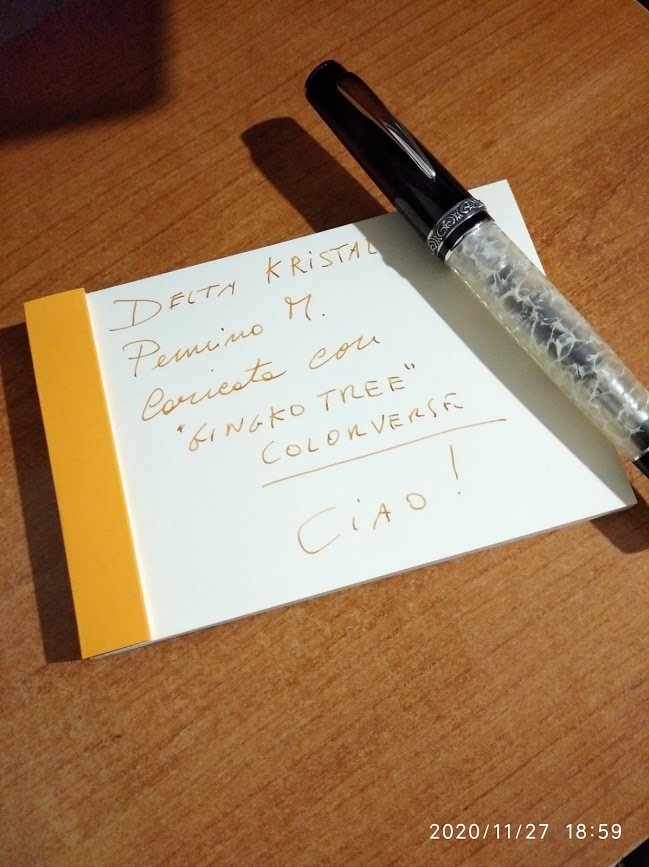 DELTA KRISTAL
Pennino M.
Caricata con
"GINGKO TREE"
COLORVERSE
CIAO!
2020/11/27 18:59